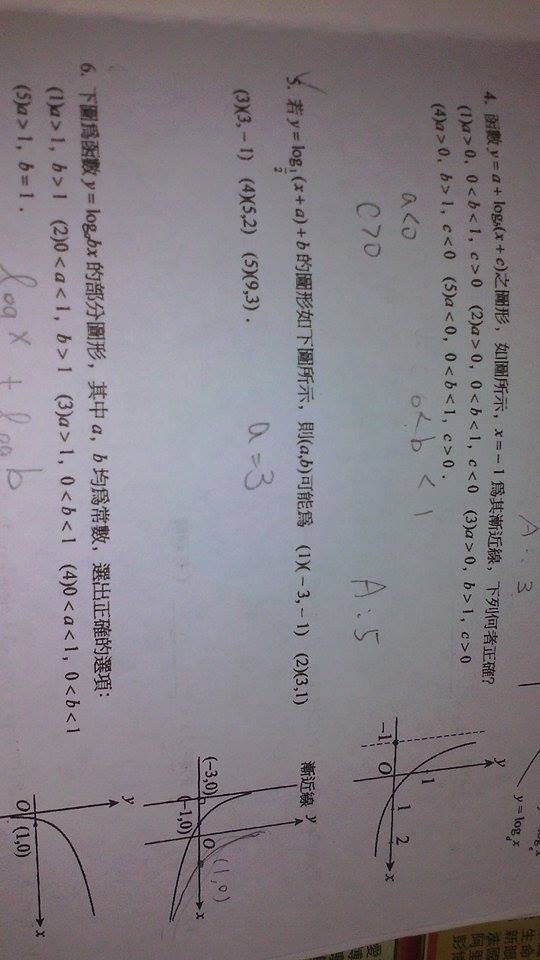 A：3
y = log x
4. 函數 y = a + log_b(x + c)之圖形，如圖所示，x = −1 為其漸近線，下列何者正確？
(1)a > 0，0 < b < 1，c > 0 (2)a > 0，0 < b < 1，c < 0 (3)a > 0，b > 1，c > 0
(4)a > 0，b > 1，c < 0 (5)a < 0，0 < b < 1，c > 0．
a<0
c>0
0<b<1
A：5
y
1
−1
O
1
2
x
5. 若 y = log_{1/2}(x + a) + b 的圖形如下圖所示，則(a,b)可能為 (1)(−3, −1) (2)(3,1)
(3)(3, −1) (4)(5,2) (5)(9,3)．
a=3
漸近線
y
(−3,0)
(−1,0)
O
(1,0)
x
6. 下圖為函數 y = log_a bx 的部分圖形，其中 a，b 均為常數，選出正確的選項：
(1)a > 1，b > 1 (2)0 < a < 1，b > 1 (3)a > 1，0 < b < 1 (4)0 < a < 1，0 < b < 1
(5)a > 1，b = 1．
log x + log b
y
O
(1,0)
x